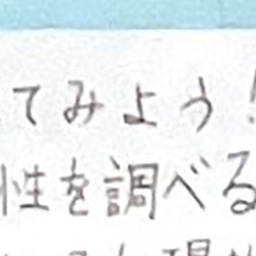 てみよう!
性を調べる